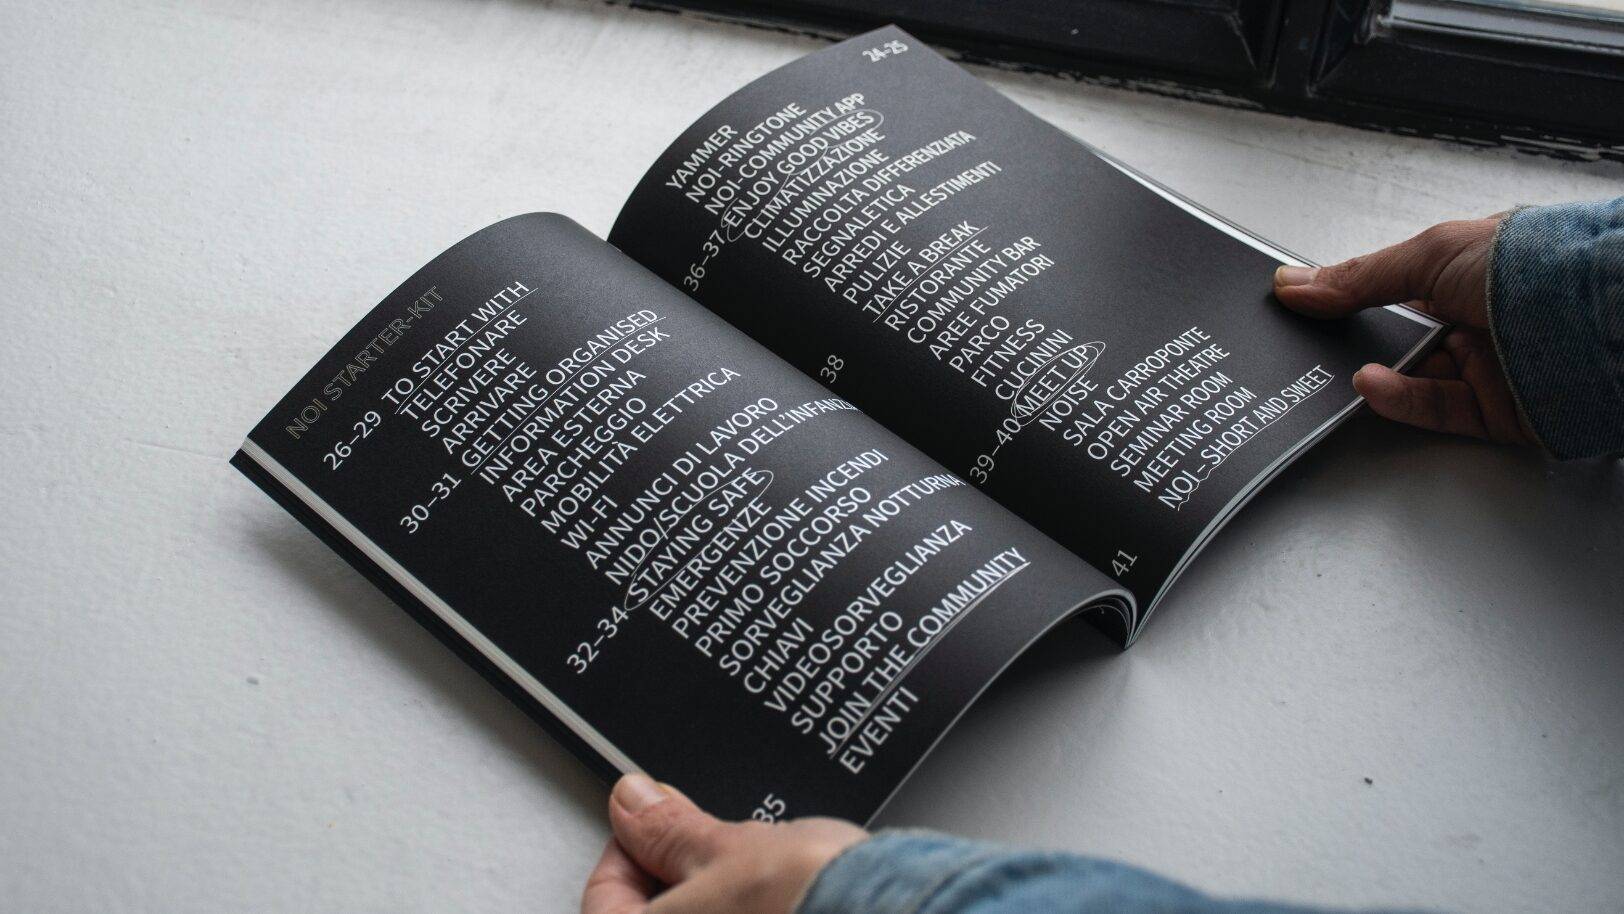 NOI STARTER-KIT
26–29 TO START WITH
TELEFONARE
SCRIVERE
ARRIVARE
30–31 GETTING ORGANISED
INFORMATION DESK
AREA ESTERNA
PARCHEGGIO
MOBILITÀ ELETTRICA
WI-FI
ANNUNCI DI LAVORO
NIDO/SCUOLA DELL'INFANZIA
32–34 STAYING SAFE
EMERGENZE
PREVENZIONE INCENDI
PRIMO SOCCORSO
SORVEGLIANZA NOTTURNA
CHIAVI
VIDEOSORVEGLIANZA
SUPPORTO
35 JOIN THE COMMUNITY
EVENTI
24–25
YAMMER
NOI-RINGTONE
NOI-COMMUNITY APP
36–37 ENJOY GOOD VIBES
CLIMATIZZAZIONE
ILLUMINAZIONE
RACCOLTA DIFFERENZIATA
SEGNALETICA
ARREDI E ALLESTIMENTI
PULIZIE
38 TAKE A BREAK
RISTORANTE
COMMUNITY BAR
AREE FUMATORI
PARCO
FITNESS
CUCININI
39–40 MEET UP
NOISE
SALA CARROPONTE
OPEN AIR THEATRE
SEMINAR ROOM
MEETING ROOM
41 NOI–SHORT AND SWEET